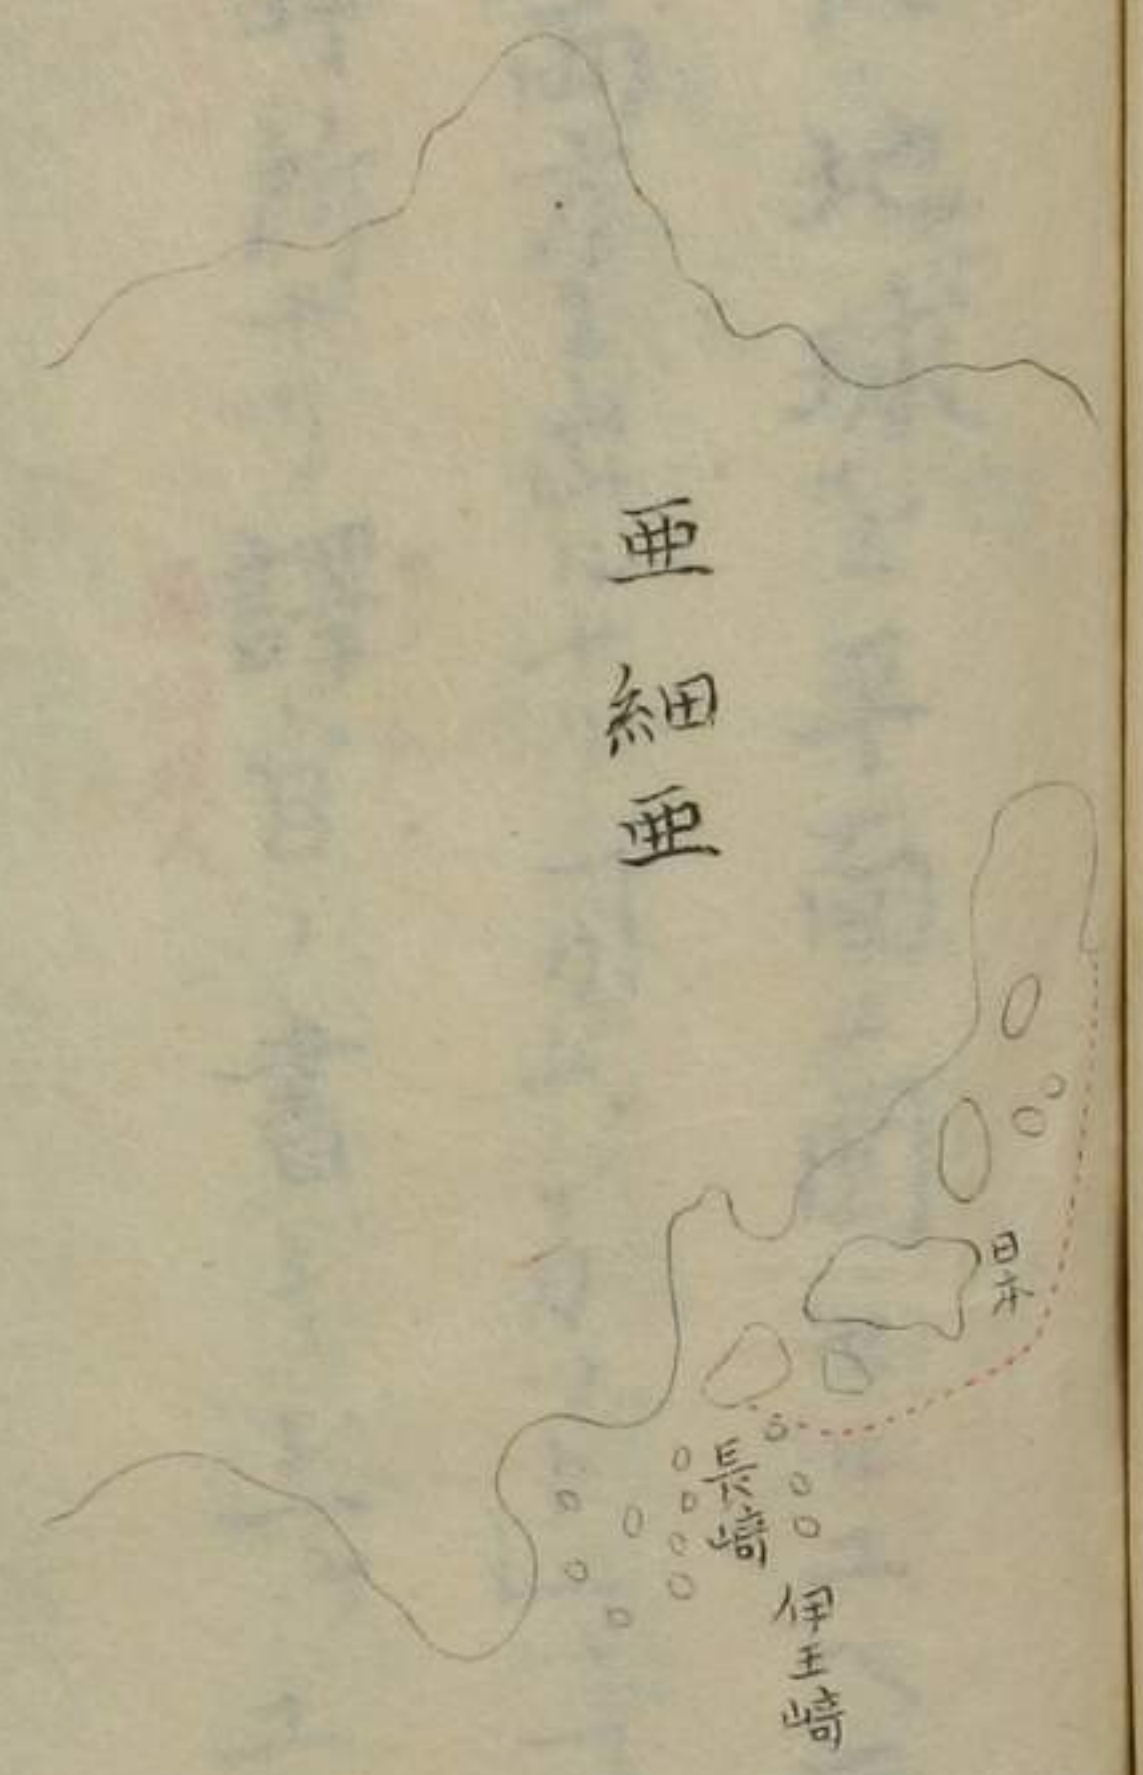 亜細亜
日本
長崎
伊王崎